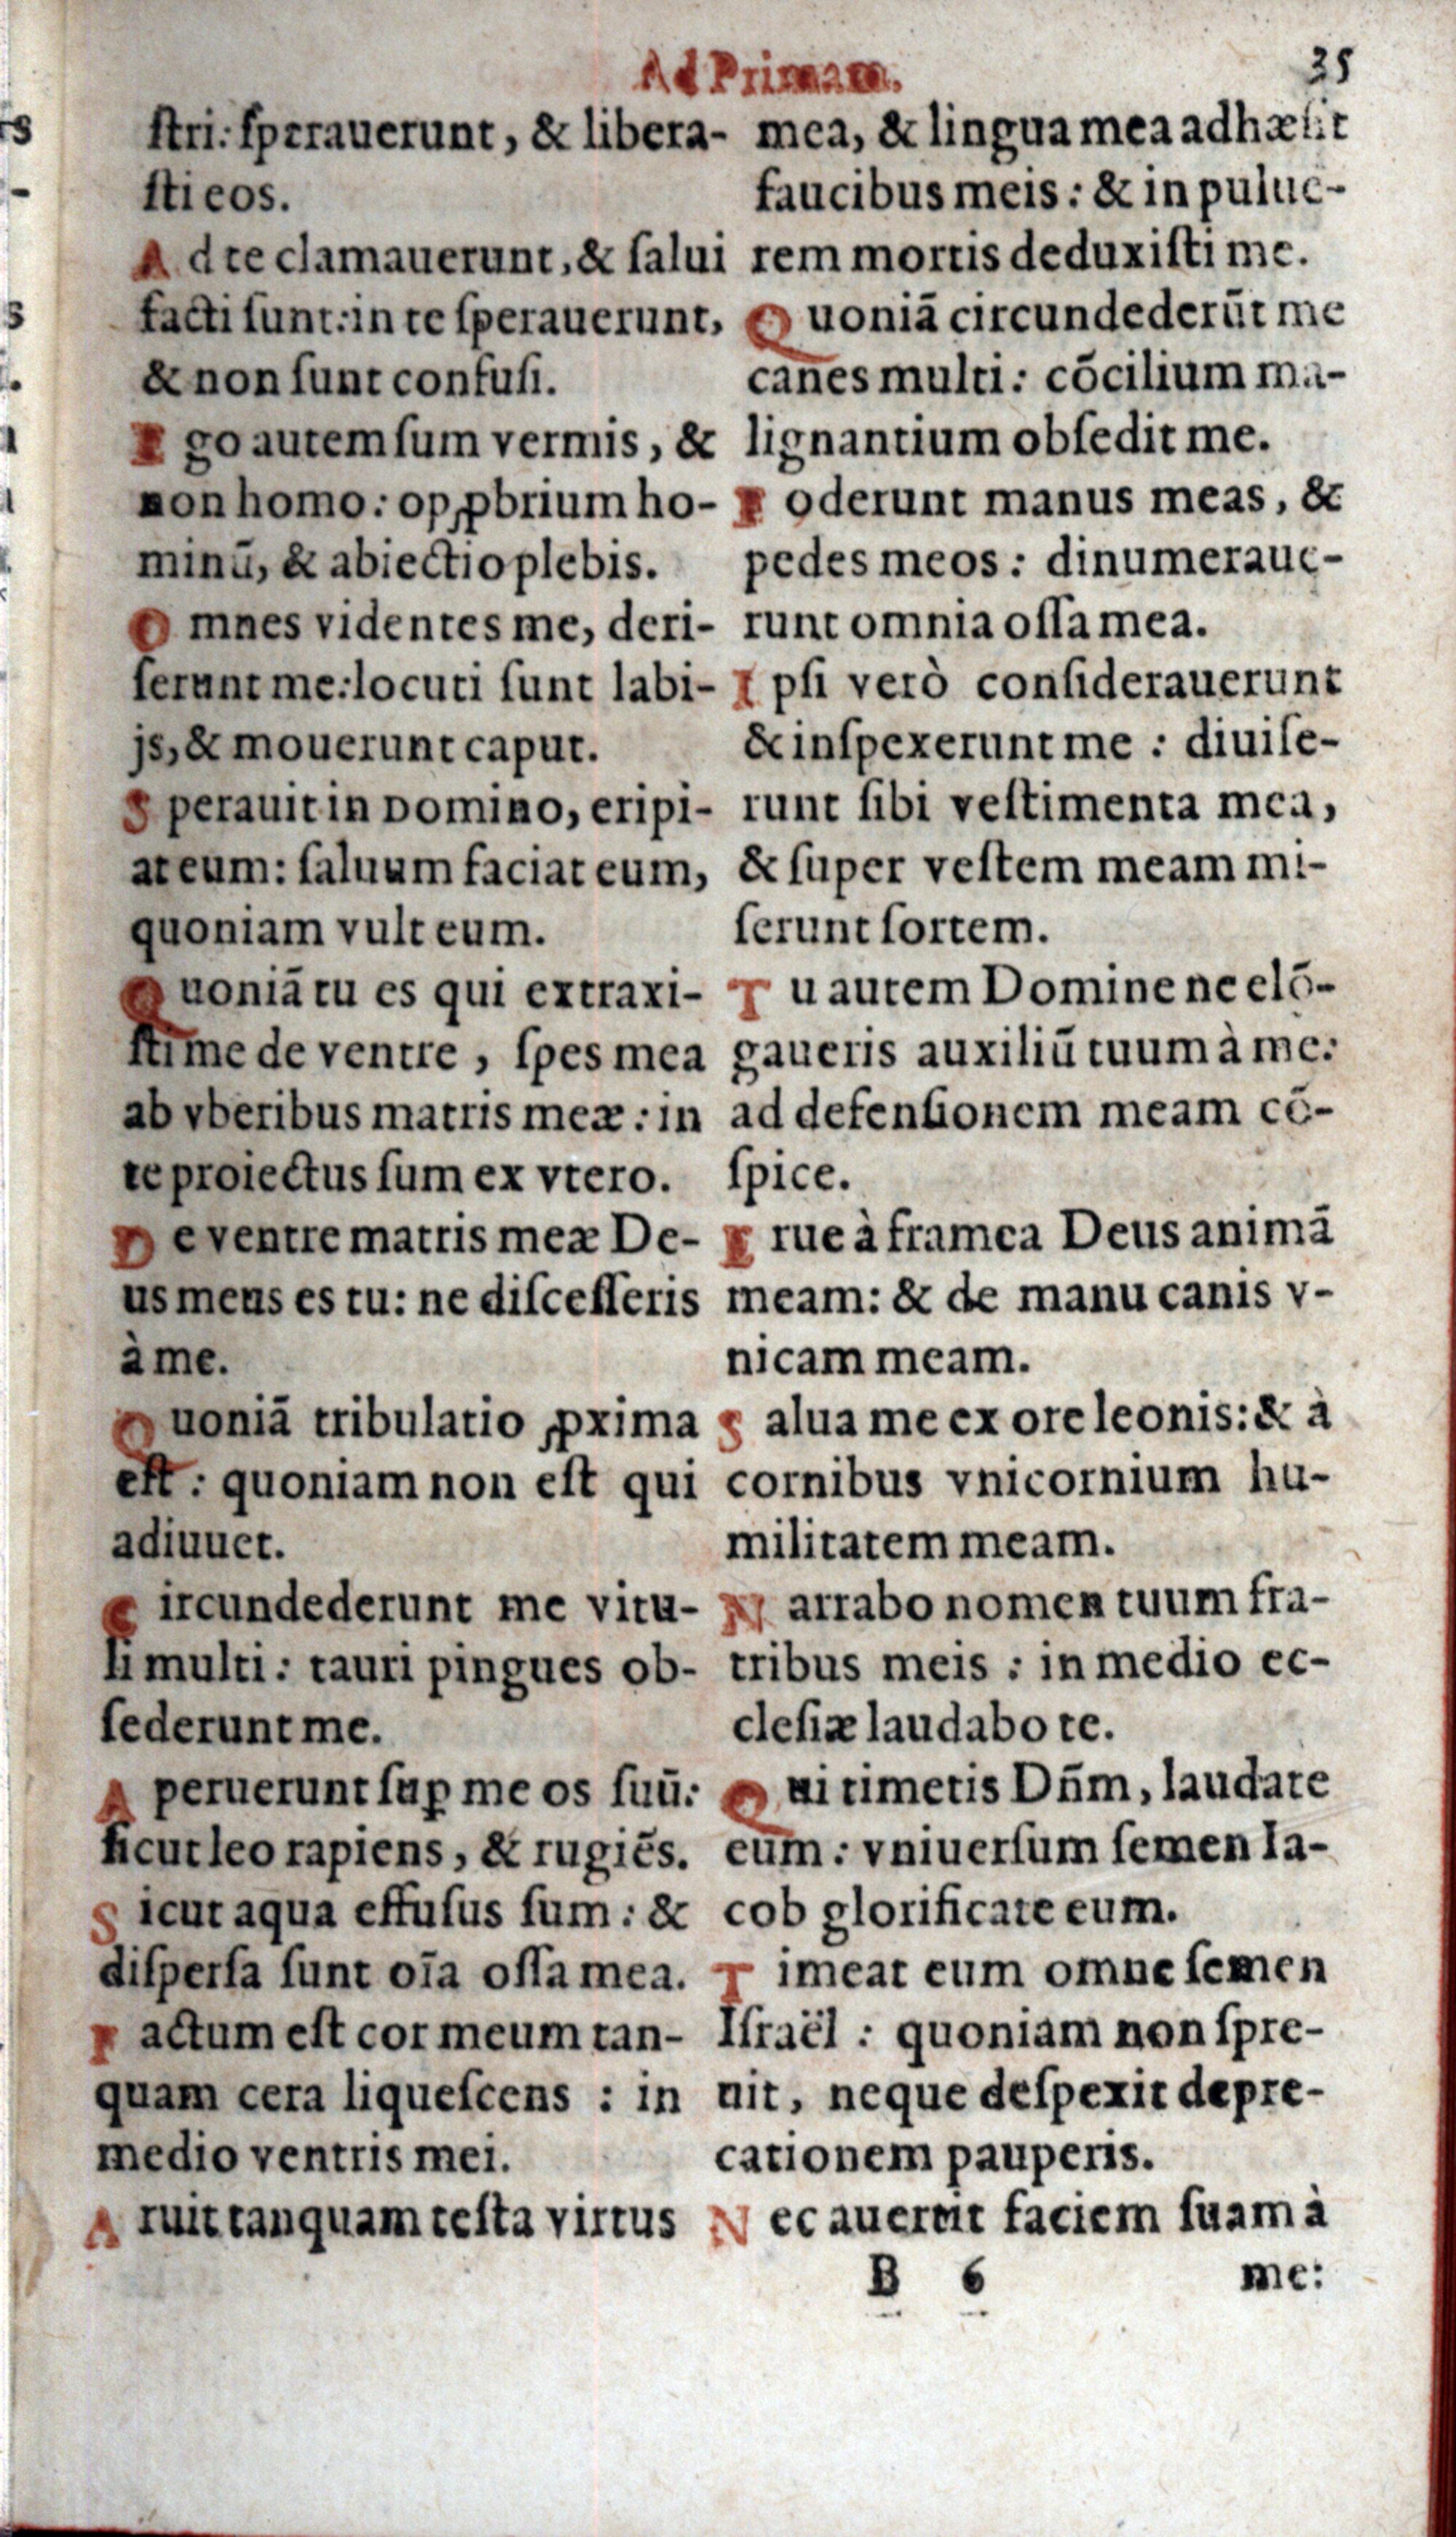 Ad Primam.
35
ſtri: ſperauerunt, & libera-
ſti eos.
Ad te clamauerunt, & ſalui
facti ſunt: in te ſperauerunt,
& non ſunt confuſi.
Ego autem ſum vermis, &
non homo: opꝓbrium ho-
minū, & abiectio plebis.
Omnes videntes me, deri-
ſerunt me: locuti ſunt labi-
js, & mouerunt caput.
Sperauit in Domino, eripi-
at eum: ſaluum faciat eum,
quoniam vult eum.
Quoniā tu es qui extraxi-
ſti me de ventre, ſpes mea
ab vberibus matris meæ: in
te proiectus ſum ex vtero.
De ventre matris meæ De-
us meus es tu: ne diſceſſeris
à me.
Quoniā tribulatio ꝓxima
eſt: quoniam non eſt qui
adiuuet.
Circundederunt me vitu-
li multi: tauri pingues ob-
ſederunt me.
Aperuerunt ſuꝑ me os ſuū:
ſicut leo rapiens, & rugiēs.
Sicut aqua effuſus ſum: &
diſperſa ſunt oīa oſſa mea.
Factum eſt cor meum tan-
quam cera liqueſcens: in
medio ventris mei.
Aruit tanquam teſta virtus
mea, & lingua mea adhæſit
faucibus meis: & in pulue-
rem mortis deduxiſti me.
Quoniā circundederūt me
canes multi: cōcilium ma-
lignantium obſedit me.
Foderunt manus meas, &
pedes meos: dinumeraue-
runt omnia oſſa mea.
Ipſi verò conſiderauerunt
& inſpexerunt me: diuiſe-
runt ſibi veſtimenta mea,
& ſuper veſtem meam mi-
ſerunt ſortem.
Tu autem Domine ne elō-
gaueris auxiliū tuum à me:
ad defenſionem meam cō-
ſpice.
Erue à framea Deus animā
meam: & de manu canis v-
nicam meam.
Salua me ex ore leonis: & à
cornibus vnicornium hu-
militatem meam.
Narrabo nomen tuum fra-
tribus meis: in medio ec-
cleſiæ laudabo te.
Qui timetis Dn̄m, laudate
eum: vniuerſum ſemen Ia-
cob glorificate eum.
Timeat eum omne ſemen
Iſraël: quoniam non ſpre-
uit, neque deſpexit depre-
cationem pauperis.
Nec auertit faciem ſuam à
B 6
me: